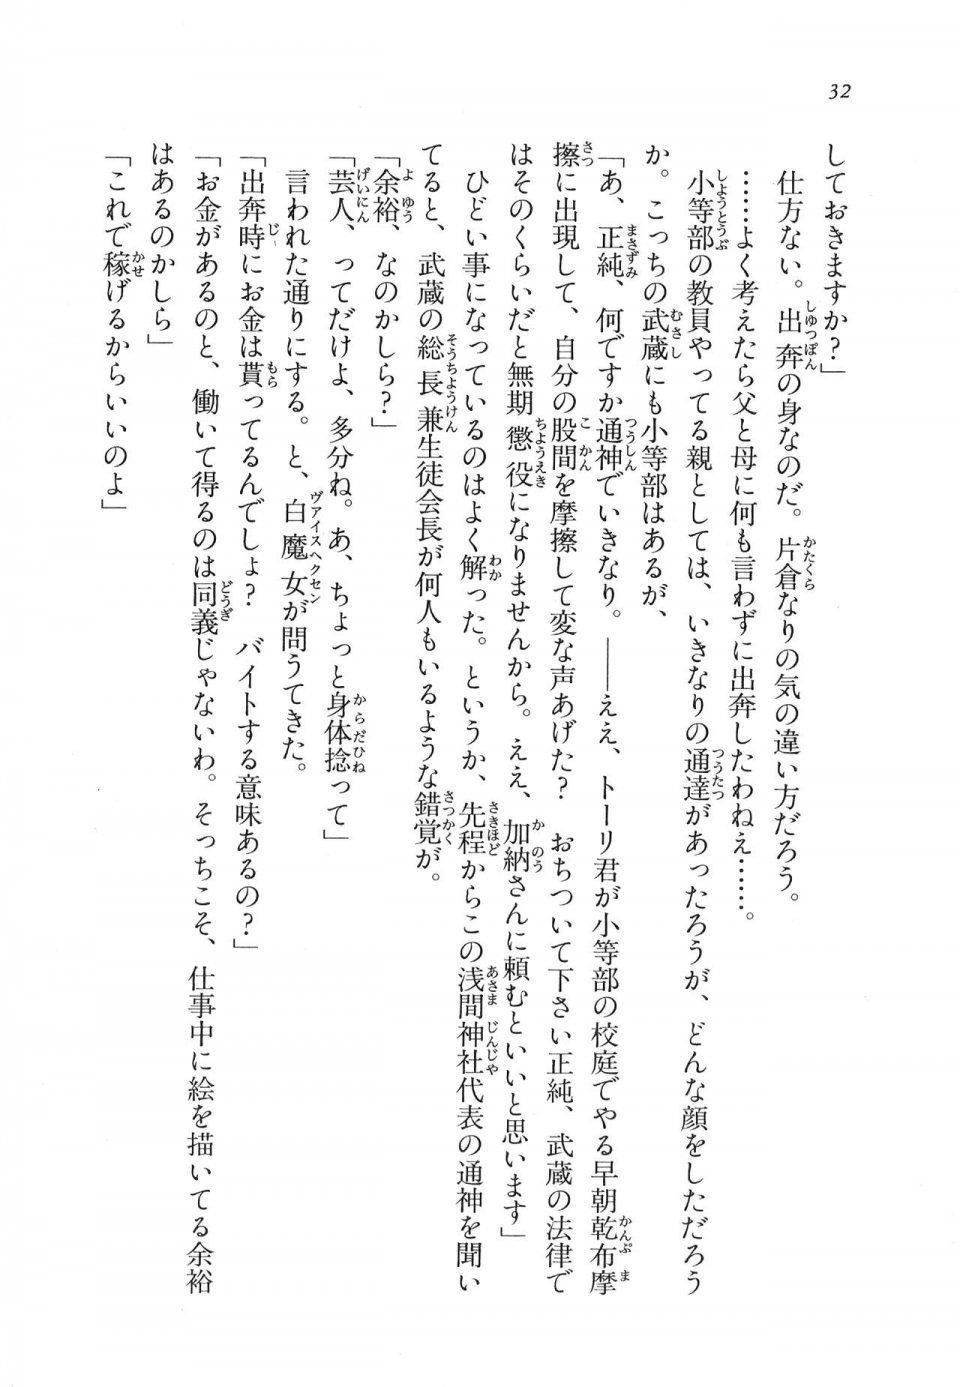 32
しておきますか？」
仕方ない。出奔の身なのだ。片倉なりの気の違い方だろう。
……よく考えたら父と母に何も言わずに出奔したわねえ……。
小等部の教員やってる親としては、いきなりの通達があったろうが、どんな顔をしただろう
か。こっちの武蔵にも小等部はあるが、
「あ、正純、何ですか通神でいきなり。――ええ、トーリ君が小等部の校庭でやる早朝乾布摩
擦に出現して、自分の股間を摩擦して変な声あげた？　おちついて下さい正純、武蔵の法律で
はそのくらいだと無期懲役になりませんから。ええ、加納さんに頼むといいと思います」
ひどい事になっているのはよく解った。というか、先程からこの浅間神社代表の通神を聞い
てると、武蔵の総長兼生徒会長が何人もいるような錯覚が。
「余裕、なのかしら？」
「芸人、ってだけよ、多分ね。あ、ちょっと身体捻って」
言われた通りにする。と、白魔女が問うてきた。
「出奔時にお金は貰ってるんでしょ？　バイトする意味あるの？」
「お金があるのと、働いて得るのは同義じゃないわ。そっちこそ、仕事中に絵を描いてる余裕
はあるのかしら」
「これで稼げるからいいのよ」